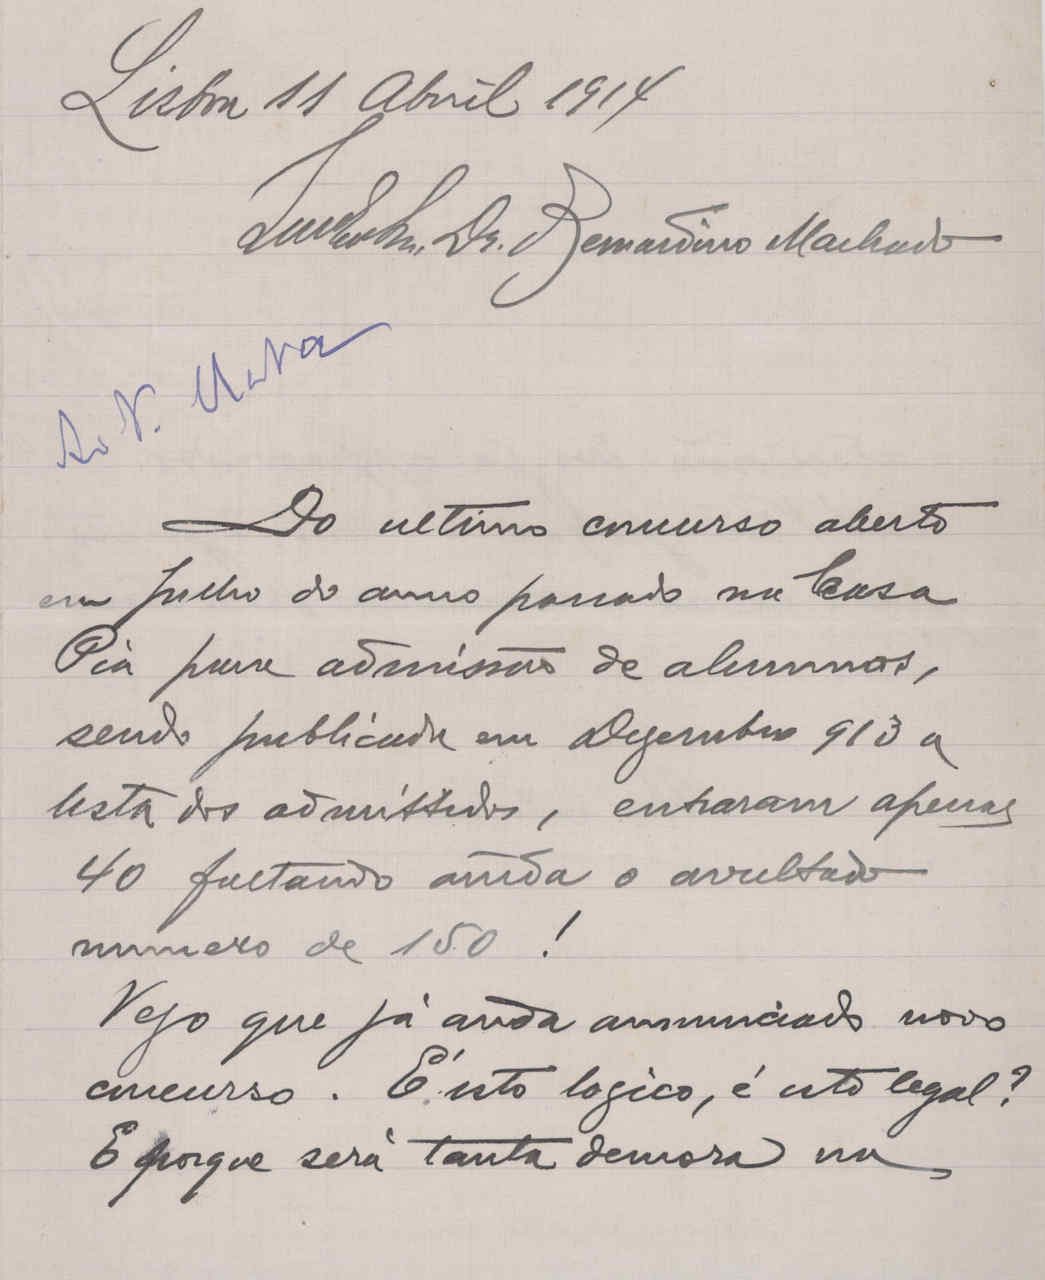 Lisboa 11 Abril 1914
Dr. Bernardino Machado
Ao V.
Do ultimo concurso aberto
em Julho do anno passado na Casa
Pia para admissão de alumnos,
sendo publicada em Dezembro 913 a
lista dos admittidos, entraram apenas
40 faltando ainda o avultado
numero de 150 !
Vejo que já anda annunciado novo
concurso. É isto logico, é isto legal?
E porque será tanta demora na